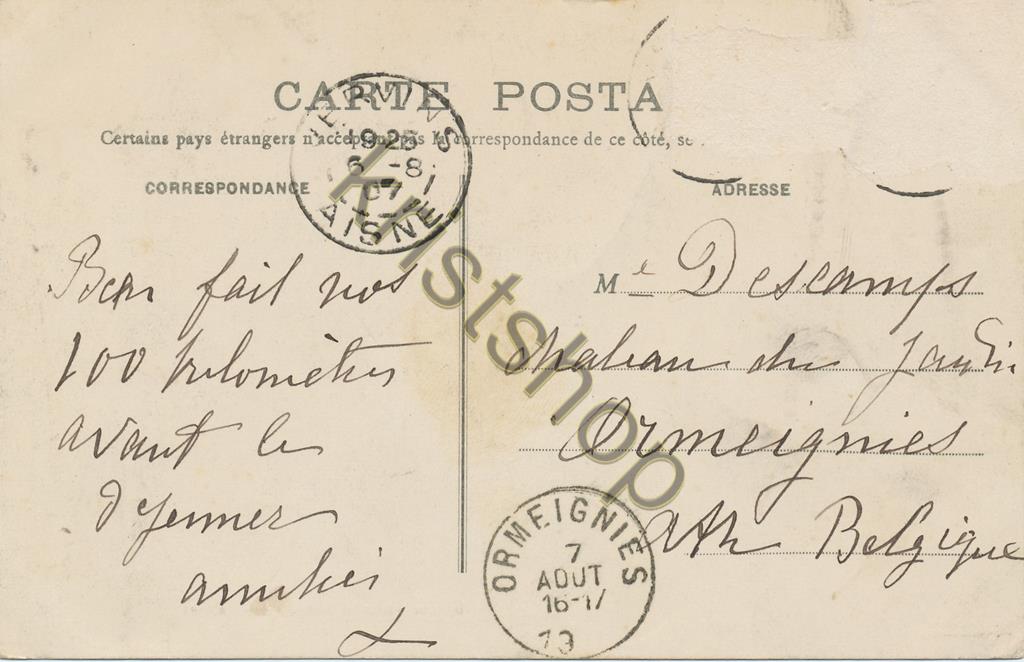 CARTE POSTA
Certains pays étrangers n'acceptent pas la correspondance de ce côté, se
CORRESPONDANCE
19 25
6 -8
07
AISNE
Bien fait nos
100 kilomètres
avant le
dejeuner
amitiés
ADRESSE
Me Descamps
chateau du
Ormeignies
Ath Belgique
ORMEIGNIES
7
AOUT
16-17
kristshop